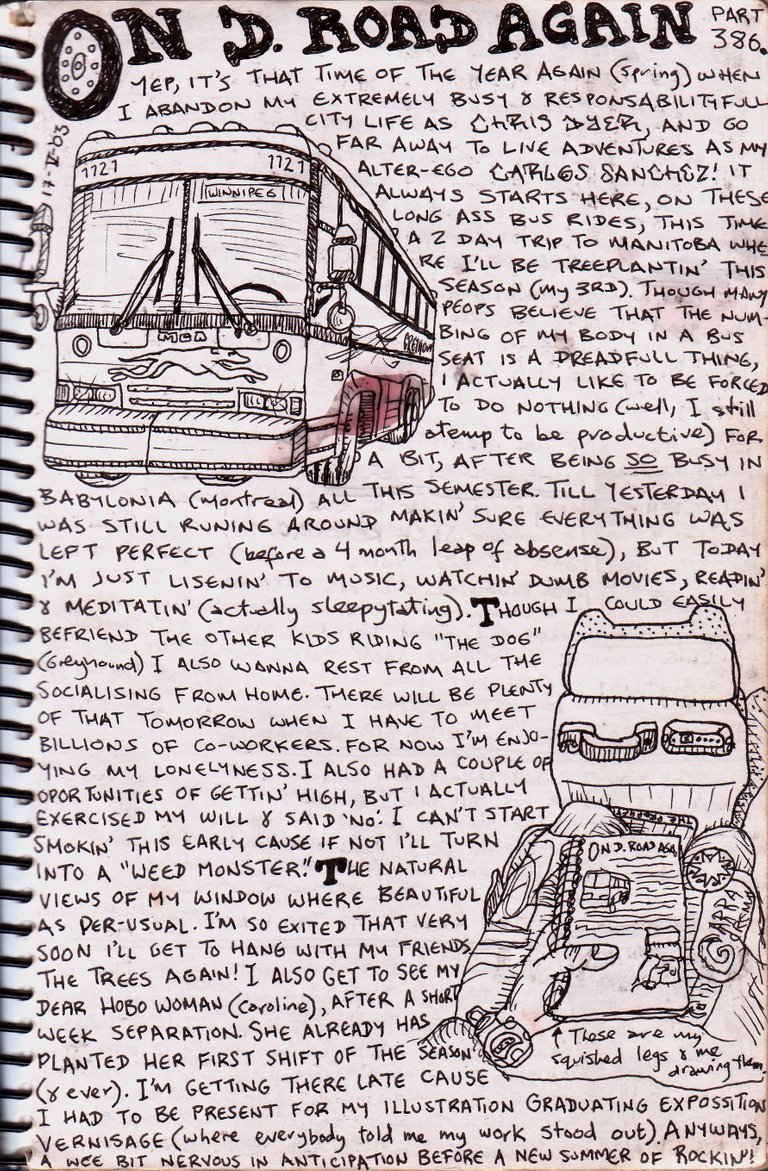 ON D. ROAD AGAIN PART 386.
YEP, IT'S THAT TIME OF THE YEAR AGAIN (spring) WHEN
I ABANDON MY EXTREMELY BUSY & RESPONSABILITYFULL
CITY LIFE AS CHRIS DYER, AND GO
FAR AWAY TO LIVE ADVENTURES AS MY
ALTER-EGO CARLOS SANCHEZ! IT
ALWAYS STARTS HERE, ON THESE
LONG ASS BUS RIDES, THIS TIME
A 2 DAY TRIP TO MANITOBA WHE
RE I'LL BE TREEPLANTIN' THIS
SEASON (my 3RD). THOUGH MANY
PEOPS BELIEVE THAT THE NUM-
BING OF MY BODY IN A BUS
SEAT IS A DREADFULL THING,
I ACTUALLY LIKE TO BE FORCED
TO DO NOTHING (well, I still
atemp to be productive) FOR
A BIT, AFTER BEING SO BUSY IN
BABYLONIA (montreal) ALL THIS SEMESTER. TILL YESTERDAY I
WAS STILL RUNING AROUND MAKIN' SURE EVERYTHING WAS
LEFT PERFECT (before a 4 month leap of absense), BUT TODAY
I'M JUST LISENIN' TO MUSIC, WATCHIN' DUMB MOVIES, READIN'
& MEDITATIN' (actually sleepytating). THOUGH I COULD EASILY
BEFRIEND THE OTHER KIDS RIDING "THE DOG"
(Greyhound) I ALSO WANNA REST FROM ALL THE
SOCIALISING FROM HOME. THERE WILL BE PLENTY
OF THAT TOMORROW WHEN I HAVE TO MEET
BILLIONS OF CO-WORKERS. FOR NOW I'M ENJO-
YING MY LONELYNESS. I ALSO HAD A COUPLE OF
OPORTUNITIES OF GETTIN' HIGH, BUT I ACTUALLY
EXERCISED MY WILL & SAID 'NO'. I CAN'T START
SMOKIN' THIS EARLY CAUSE IF NOT I'LL TURN
INTO A "WEED MONSTER". THE NATURAL
VIEWS OF MY WINDOW WHERE BEAUTIFUL
AS PER-USUAL. I'M SO EXITED THAT VERY
SOON I'LL GET TO HANG WITH MY FRIENDS
THE TREES AGAIN! I ALSO GET TO SEE MY
DEAR HOBO WOMAN (Caroline), AFTER A SHORT
WEEK SEPARATION. SHE ALREADY HAS
PLANTED HER FIRST SHIFT OF THE SEASON
(& ever). I'M GETTING THERE LATE CAUSE
I HAD TO BE PRESENT FOR MY ILLUSTRATION GRADUATING EXPOSSITION
VERNISAGE (where everybody told me my work stood out). ANYWAYS,
A WEE BIT NERVOUS IN ANTICIPATION BEFORE A NEW SUMMER OF ROCKIN'!
17-V-03
1121 1121
WINNIPEG
MCA
ON D. ROAD AGA
KAPPA
↑ These are my
squished legs & me
drawing them.